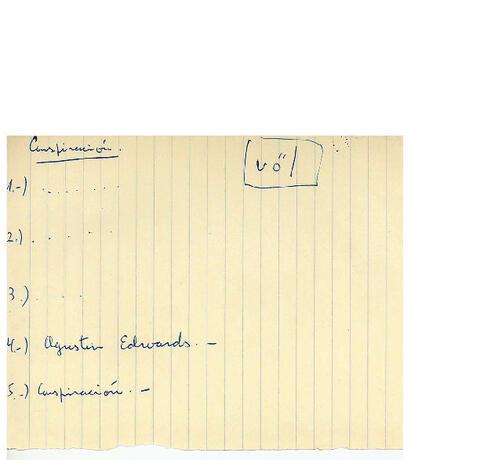 Conspiración.
1.-) . . . . . . . .
2.) . . . . .
3.) . . . .
4.-) Agustin Edwards. -
5.-) Conspiración. -